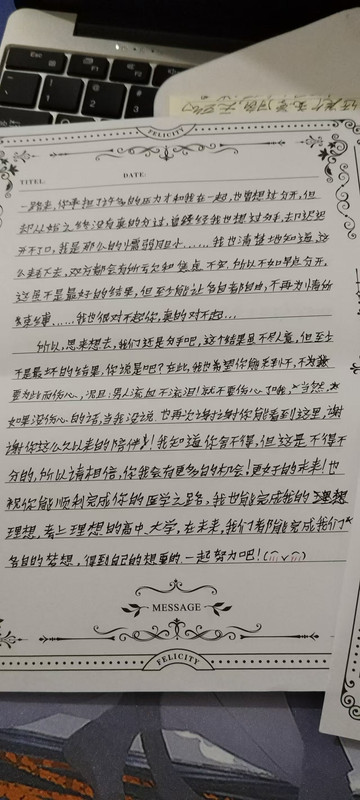 Esc
FELICITY
TITEL: DATE:
一路来，你承担了许多的压力才和我在一起，也曾想过分开，但
却从始之终没有真的分过，曾经我也想过分手，去口迟迟
开不了口，我是那么的懦弱胆小……我也清楚地知道，这
么耗下去，双方都会有所亏欠和焦虑不安，所以不如早点分开，
这虽不是最好的结果，但至少能让各自都自由，不再为情所
束缚……我也很对不起你，真的对不起…
所以，思来想去，我们还是分手吧，这个结果虽不尽人意，但至少
不是最坏的结果，你说是吧？在此，我也希望你能看到不，不
要为此而伤心，况且：男人流血不流泪！就不要伤心了哦，当然，
如果没伤心的话，当我没说，也再次谢谢你能看到这里，谢
谢你这么久以来的陪伴！我知道你舍不得，但这是不得不
分的，所以请相信，你我会有更多的机会！更好的未来！也
祝你能顺利完成你的医学之路，我也能完成我的
理想，考上理想的高中、大学，在未来，我们都能完成我们
各自的梦想，得到自己的想要的，一起努力吧！
MESSAGE
FELICITY